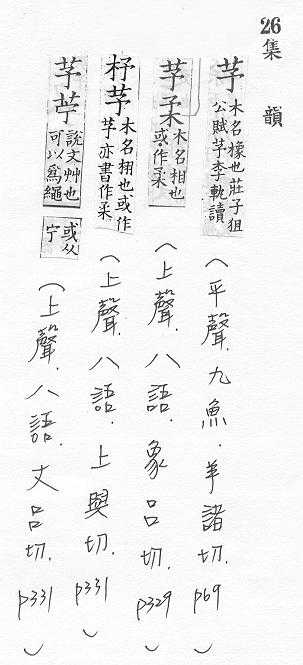 26 集韻
芧 木名橡也莊子狙公賦芧李軌讀 (平聲.九魚.羊諸切.p69)
芧柔 木名相也或作柔 (上聲.八語.象呂切.p329)
杼芧 木名栩也或作芧亦書作柔 (上聲.八語.上與切.p331)
芧苧 說文艸也可以爲繩或从宁 (上聲.八語.丈呂切.p331)